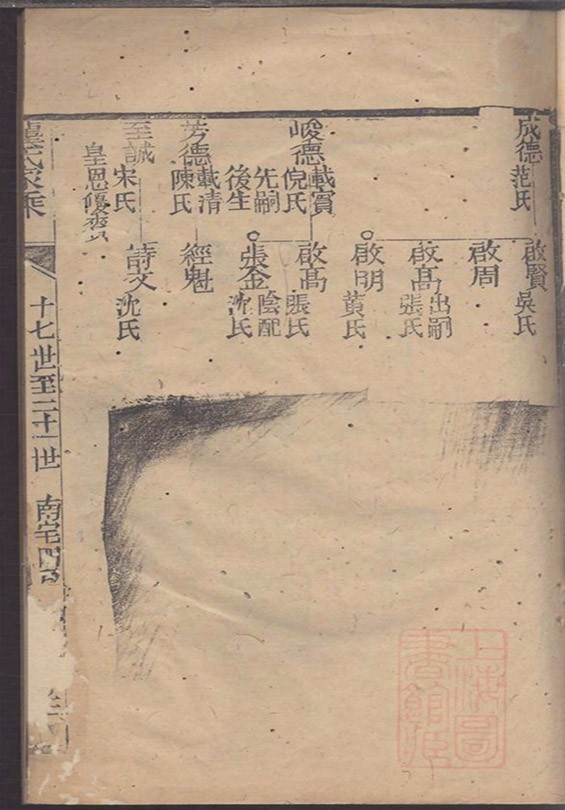 成德 范氏
啟賢 吳氏
啟周
啟高 出嗣 張氏
啟明 黃氏
峻德 載寳 倪氏
先嗣 後生
啟高 張氏
張金 陰配 沈氏
芳德 載清 陳氏
經魁
至誠 宋氏
詩文 沈氏
皇恩
氏家乘
十七世至二十一世
南宅四
上海圖
書館臧